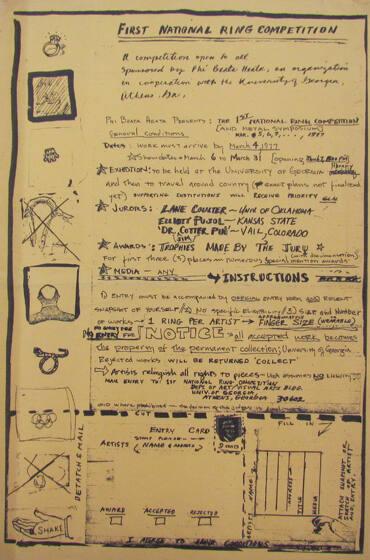 FIRST NATIONAL RING COMPETITION
A competition open to all
Sponsored by Phi Beata Heata, an organization
in cooperation with the University of Georgia,
Athens, Ga.
PHI BEATA HEATA PRESENTS: THE 1ST NATIONAL RING COMPETITION
(AND METAL SYMPOSIUM)
General conditions
MAR. 4, 5, 6, 7, . . . , 1977
Dates: work must arrive by March 4, 1977
Show dates March 6 to March 31 (opening
EXHIBITION: to be held at the UNIVERSITY OF GEORGIA
and then to travel around country (exact plans not finalized
YET) SUPPORTING INSTITUTIONS WILL RECEIVE PRIORITY
JURORS: LANE COULTER ~ UNIV OF OKLAHOMA
ELLIOTT PUJOL ~ KANSAS STATE
"DR. COTTER PIN" ~ VAIL, COLORADO
AWARDS: TROPHIES MADE BY THE JURY
(with documentation)
For first three (3) places in numerous special mention awards
MEDIA - ANY
INSTRUCTIONS
1) ENTRY MUST BE ACCOMPANIED BY OFFICIAL ENTRY FORM AND RECENT
SNAPSHOT OF YOURSELF 2) No specific eligibility 3) Size and Number
of works ~ 1 RING PER ARTIST ~ FINGER SIZE (WEARABLE)
NO ENTRY FEE
NOTICE all accepted work becomes
the property of the permanent collection; University of Georgia
Rejected works WILL BE RETURNED "COLLECT"
Artists relinquish all rights to pieces
MAIL ENTRY TO: 1ST NATIONAL RING COMPETITION
DEPT. OF ART, VISUAL ARTS BLDG.
UNIV. OF GEORGIA
ATHENS, GEORGIA 30602
CUT
DETATCH & MAIL
ENTRY CARD
ARTISTS
(NAME & ADDRESS)
FILL IN
ARTIST NAME
ADDRESS
TITLE
MEDIA
ATTACH SNAPSHOT OR
SKETCH OF ARTIST
AND ENTRY
AWARD ACCEPTED REJECTED
SHAKE
I AGREE TO ABOVE CONDITIONS